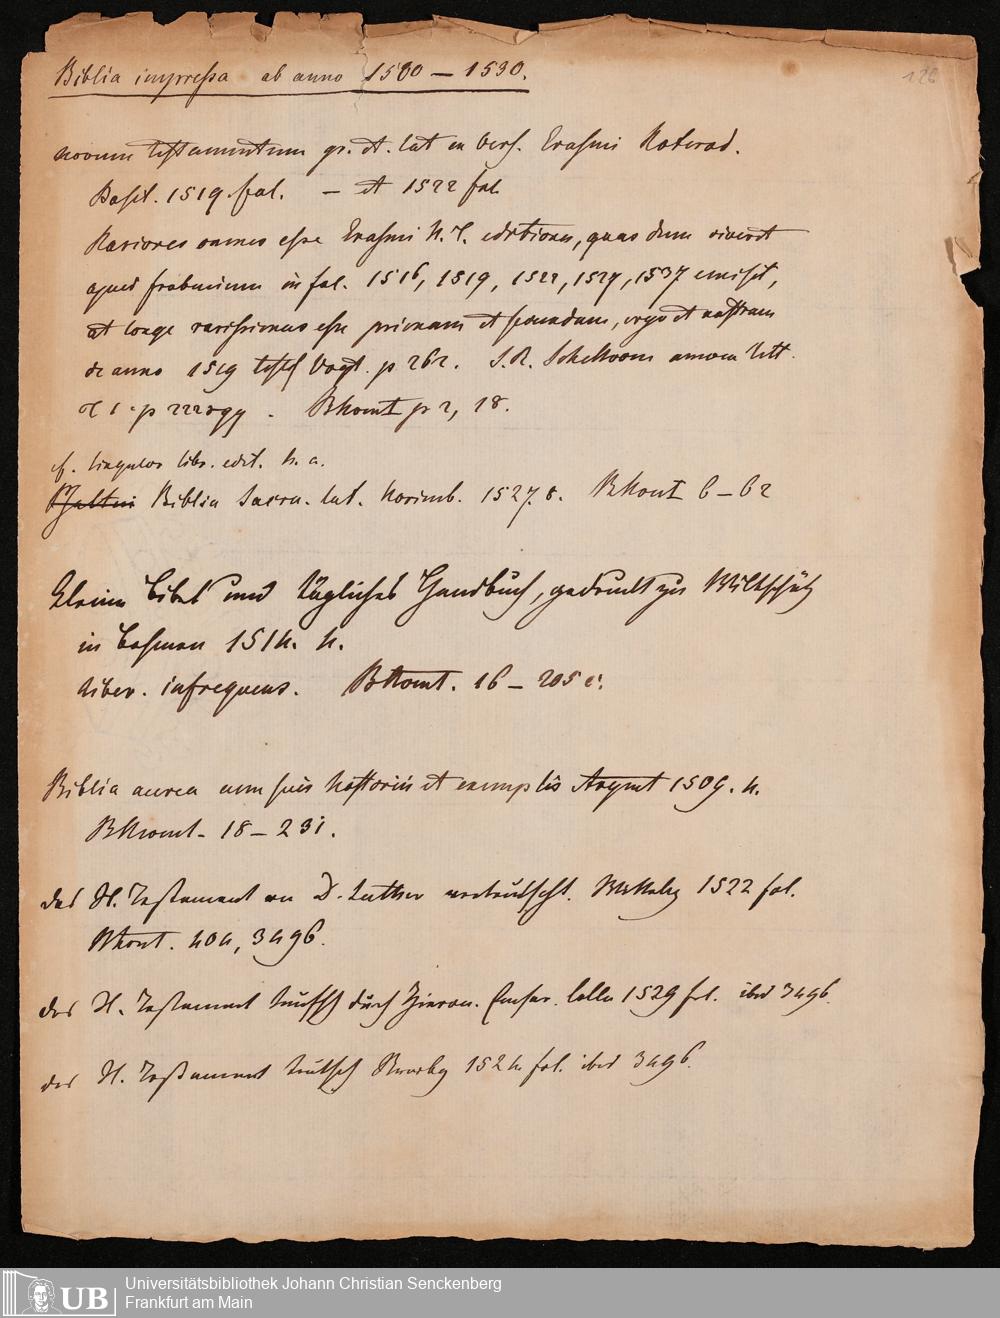 Biblia impressa ab anno 1500 – 1530.
126
novum testamentum gr. et. lat ex vers. Erasmi Roterod.
Basil. 1519 fol. – et 1522 fol
Rariores omnes esse Erasmi N.T. editiones, quas dum viveret
apud Frobenium in fol. 1516, 1519, 1522, 1527, 1537 emisit,
at longe rarissimas esse primam et secundam, ergo et nostram
de anno 1519 Vogt. p 262. amoen litt.
p 222 p 2, 18.
cf. singulos libr. edit. h. a.
Biblia Sacra. lat. Norimb. 1527. 8. 6 – 62
Kleine Bibel und tägliches Handbuch, gedruckt zu
in 1514. 4.
liber. infrequens. 16 – 205
Biblia aurea cum suis historiis et exemplis Argent 1509. 4.
18 – 231.
das N. Testament D. Luther 1522 fol.
404, 3496.
das N. Testament teutsch durch Hieron. Emser. 1529 fol. ibid 3496.
das N. Testament teutsch 1524 fol. ibid 3496.
UB
Universitätsbibliothek Johann Christian Senckenberg
Frankfurt am Main